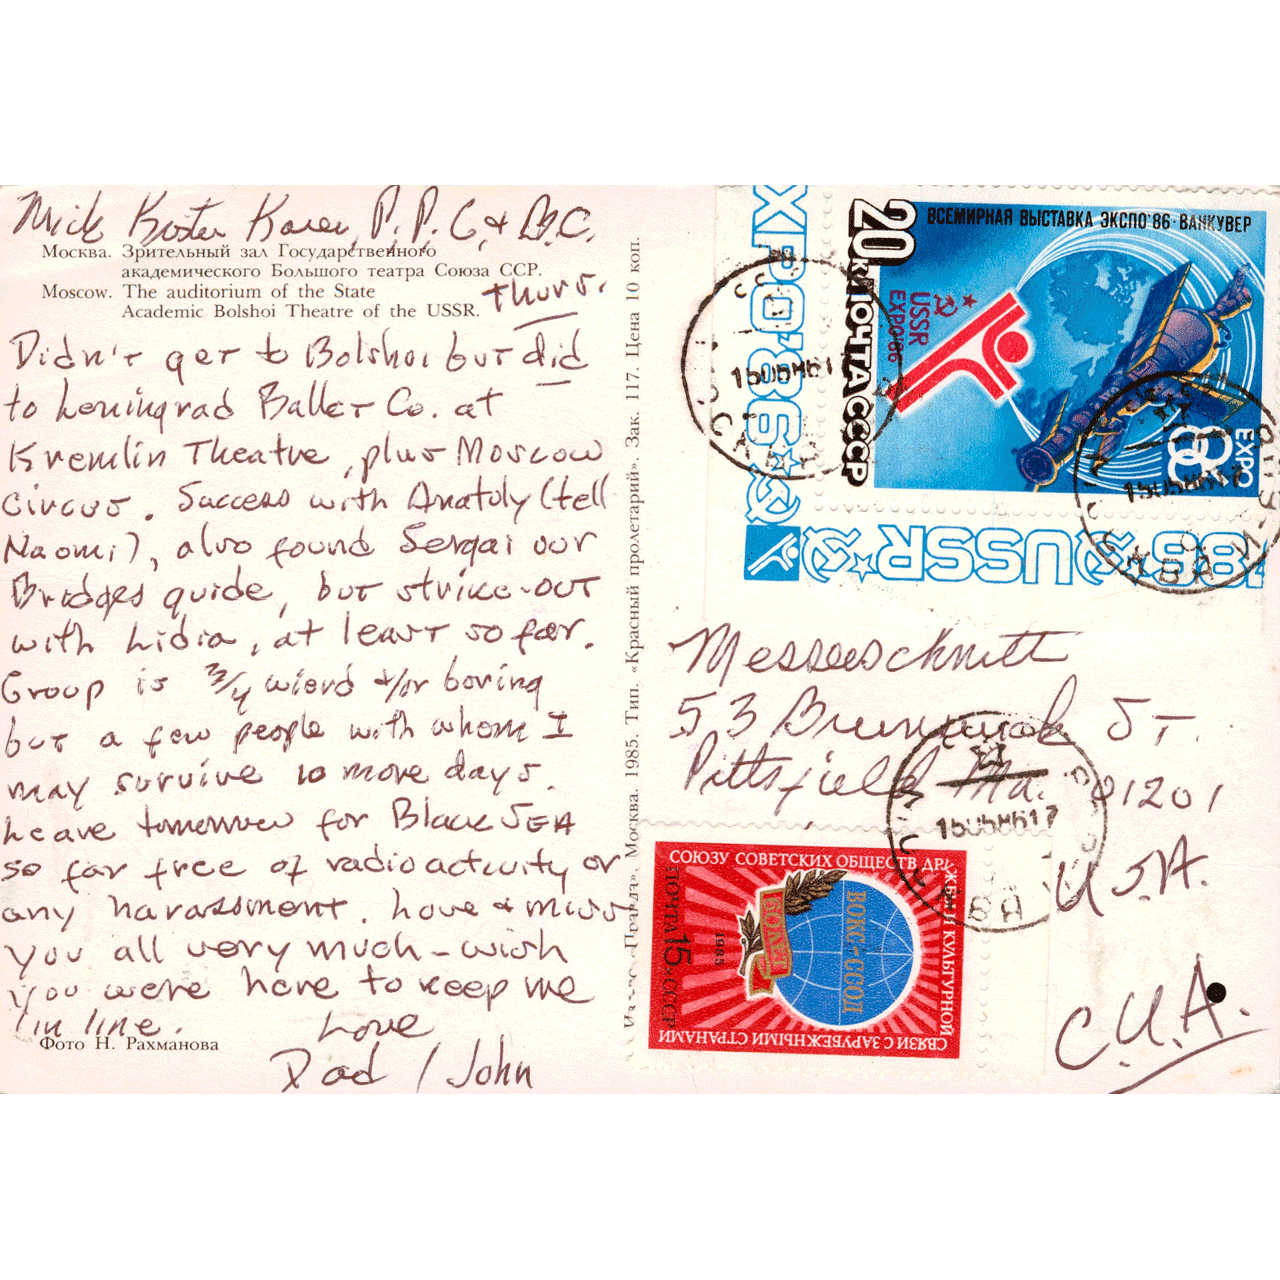 Mick Kristen Karen, P. P. C. & B.C.
Москва. Зрительный зал Государственного
академического Большого театра Союза ССР.
Moscow. The auditorium of the State
Academic Bolshoi Theatre of the USSR.
Thurs.
Didn't get to Bolshoi but did
to Leningrad Ballet Co. at
Kremlin Theatre, plus Moscow
Circus. Success with Anatoly (tell
Naomi), also found Sergai our
Bridges guide, but strike-out
with Lidia, at least so far.
Group is 3/4 wierd &/or boring
but a few people with whom I
may survive 10 more days.
Leave tomorrow for Black SEA
so far free of radioactivity or
any harassment. Love & miss
you all very much – wish
you were here to keep me
in line. Love
Dad / John
Фото Н. Рахманова
«Правда». Москва. 1985. Тип. «Красный пролетарий». Зак. 117. Цена 10 коп.
ВСЕМИРНАЯ ВЫСТАВКА ЭКСПО'86 · ВАНКУВЕР
20 К. ПОЧТА СССР
USSR
EXPO'86
EXPO
86
XPO'86
'86 USSR
15058617
МОСКВА
Messerschmitt
53 Brunswick St.
Pittsfield Ma. 01201
USA.
С.Ш.А.
15058617
СОЮЗУ СОВЕТСКИХ ОБЩЕСТВ ДРУЖБЫ И КУЛЬТУРНОЙ
СВЯЗИ С ЗАРУБЕЖНЫМИ СТРАНАМИ
ВОКС-ССОД
60 ЛЕТ
1985
ПОЧТА 15 К СССР